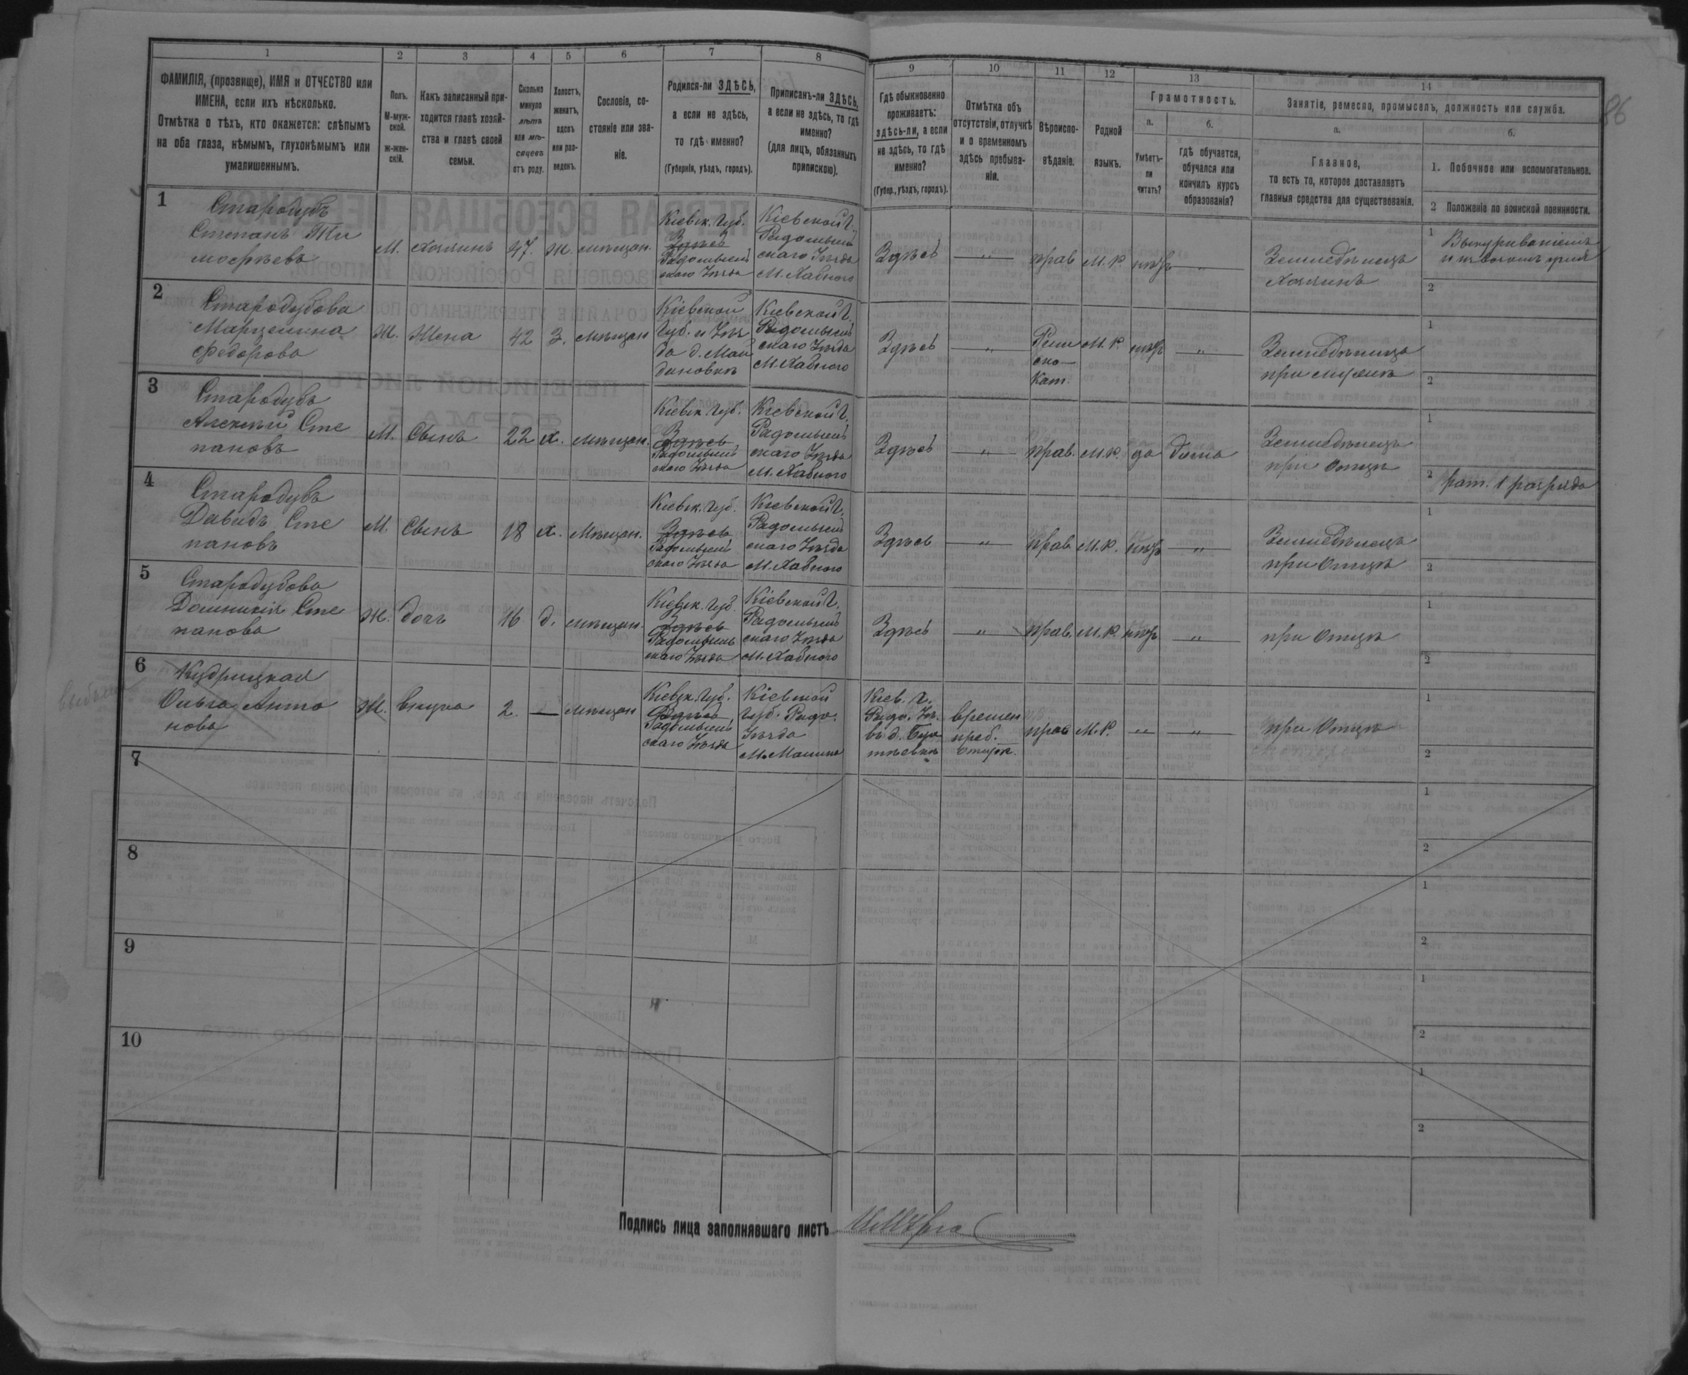 1 2 3 4 5 6 7 8 9 10 11 12 13 14
ФАМИЛІЯ, (прозвище), ИМЯ и ОТЧЕСТВО или
ИМЕНА, если ихъ нѣсколько.
Отмѣтка о тѣхъ, кто окажется: слѣпымъ
на оба глаза, нѣмымъ, глухонѣмымъ или
умалишеннымъ.
Полъ.
М-муж-
ской.
Ж-жен-
скій.
Какъ записанный при-
ходится главѣ хозяй-
ства и главѣ своей
семьи.
Сколько
минуло
лѣтъ
или мѣ-
сяцевъ
отъ роду.
Холостъ,
женатъ,
вдовъ
или раз-
веденъ.
Сословіе, со-
стояніе или зва-
ніе.
Родился-ли ЗДѢСЬ,
а если не здѣсь,
то гдѣ именно?
(Губернія, уѣздъ, городъ).
Приписанъ-ли ЗДѢСЬ,
а если не здѣсь, то гдѣ
именно?
(для лицъ, обязанныхъ
припискою).
Гдѣ обыкновенно
проживаетъ:
здѣсь-ли, а если
не здѣсь, то гдѣ
именно?
(Губер., уѣздъ, городъ).
Отмѣтка объ
отсутствіи, отлучкѣ
и о временномъ
здѣсь пребыва-
ніи.
Вѣроиспо-
вѣданіе.
Родной
языкъ.
Грамотность.
а.
Умѣетъ-
ли
читать?
б.
гдѣ обучается,
обучался или
кончилъ курсъ
образованія?
Занятіе, ремесло, промыселъ, должность или служба.
а.
Главное,
то есть то, которое доставляетъ
главныя средства для существованія.
б.
1. Побочное или вспомогательное.
2 Положеніе по воинской повинности.
86
1
Стародубъ
Степанъ Ти
мофѣевъ
М. Хозяинъ 47. Ж. мѣщан.
Кіевск. Губ.
Здѣсь
Радомысль
скаго Уѣзда
Кіевской Г.
Радомысль
скаго Уѣзда
М. Хабного
Здѣсь — „ — прав М. Р. нѣтъ „
Земледѣлецъ
Хозяинъ
1
2
2
Стародубова
Марцелина
Федорова
Ж. Жена 42 З. мѣщан
Кіевской
Губ. и Уѣз
да д. Май
дановки
Кіевской Г.
Радомысль
скаго Уѣзда
М. Хабного
Здѣсь — „ — Рим
ско
Кат. М. Р. нѣтъ — „ —
Земледѣлица
при мужѣ
1
2
3
Стародубъ
Алексѣй Сте
пановъ
М. Сынъ 22 Х. мѣщан.
Кіевск. Губ.
Здѣсь
Радомысль
скаго Уѣзда
Кіевской Г.
Радомысль
скаго Уѣзда
М. Хабного
Здѣсь — „ — прав. М. Р. да Дома
Земледѣлецъ
при Отцѣ
1
2 рат. 1 разряда
4
Стародубъ
Давидъ Сте
пановъ
М. Сынъ 18 Х. Мѣщан.
Кіевск. Губ.
Здѣсь
Радомысль
скаго Уѣзда
Кіевской Г.
Радомысль
скаго Уѣзда
М. Хабного
Здѣсь — „ — прав М. Р. нѣтъ — „ —
Земледѣлецъ
при Отцѣ
1
2
5
Стародубова
Домникія Сте
панова
Ж. дочь 16 д. мѣщан.
Кіевск. Губ.
Здѣсь
Радомысль
скаго Уѣзда
Кіевской Г.
Радомысль
скаго Уѣзда
М. Хабного
Здѣсь — „ — прав. М. Р. нѣтъ — „ —
при Отцѣ
1
2
6
Кудрицкая
Ольга Анто
нова
Ж. внучка 2. — мѣщан
Кіевск. Губ.
Здѣсь
Радомысль
скаго Уѣзда
Кіевской
Губ. Радо.
Уѣзда
М. Малина
Кіев. Г.
Радо. Уѣ.
въ д.
времен
преб.
прав М. Р. „ „
при Отцѣ
1
2
7
1
2
8
1
2
9
1
2
10
1
2
Подпись лица заполнявшаго листъ